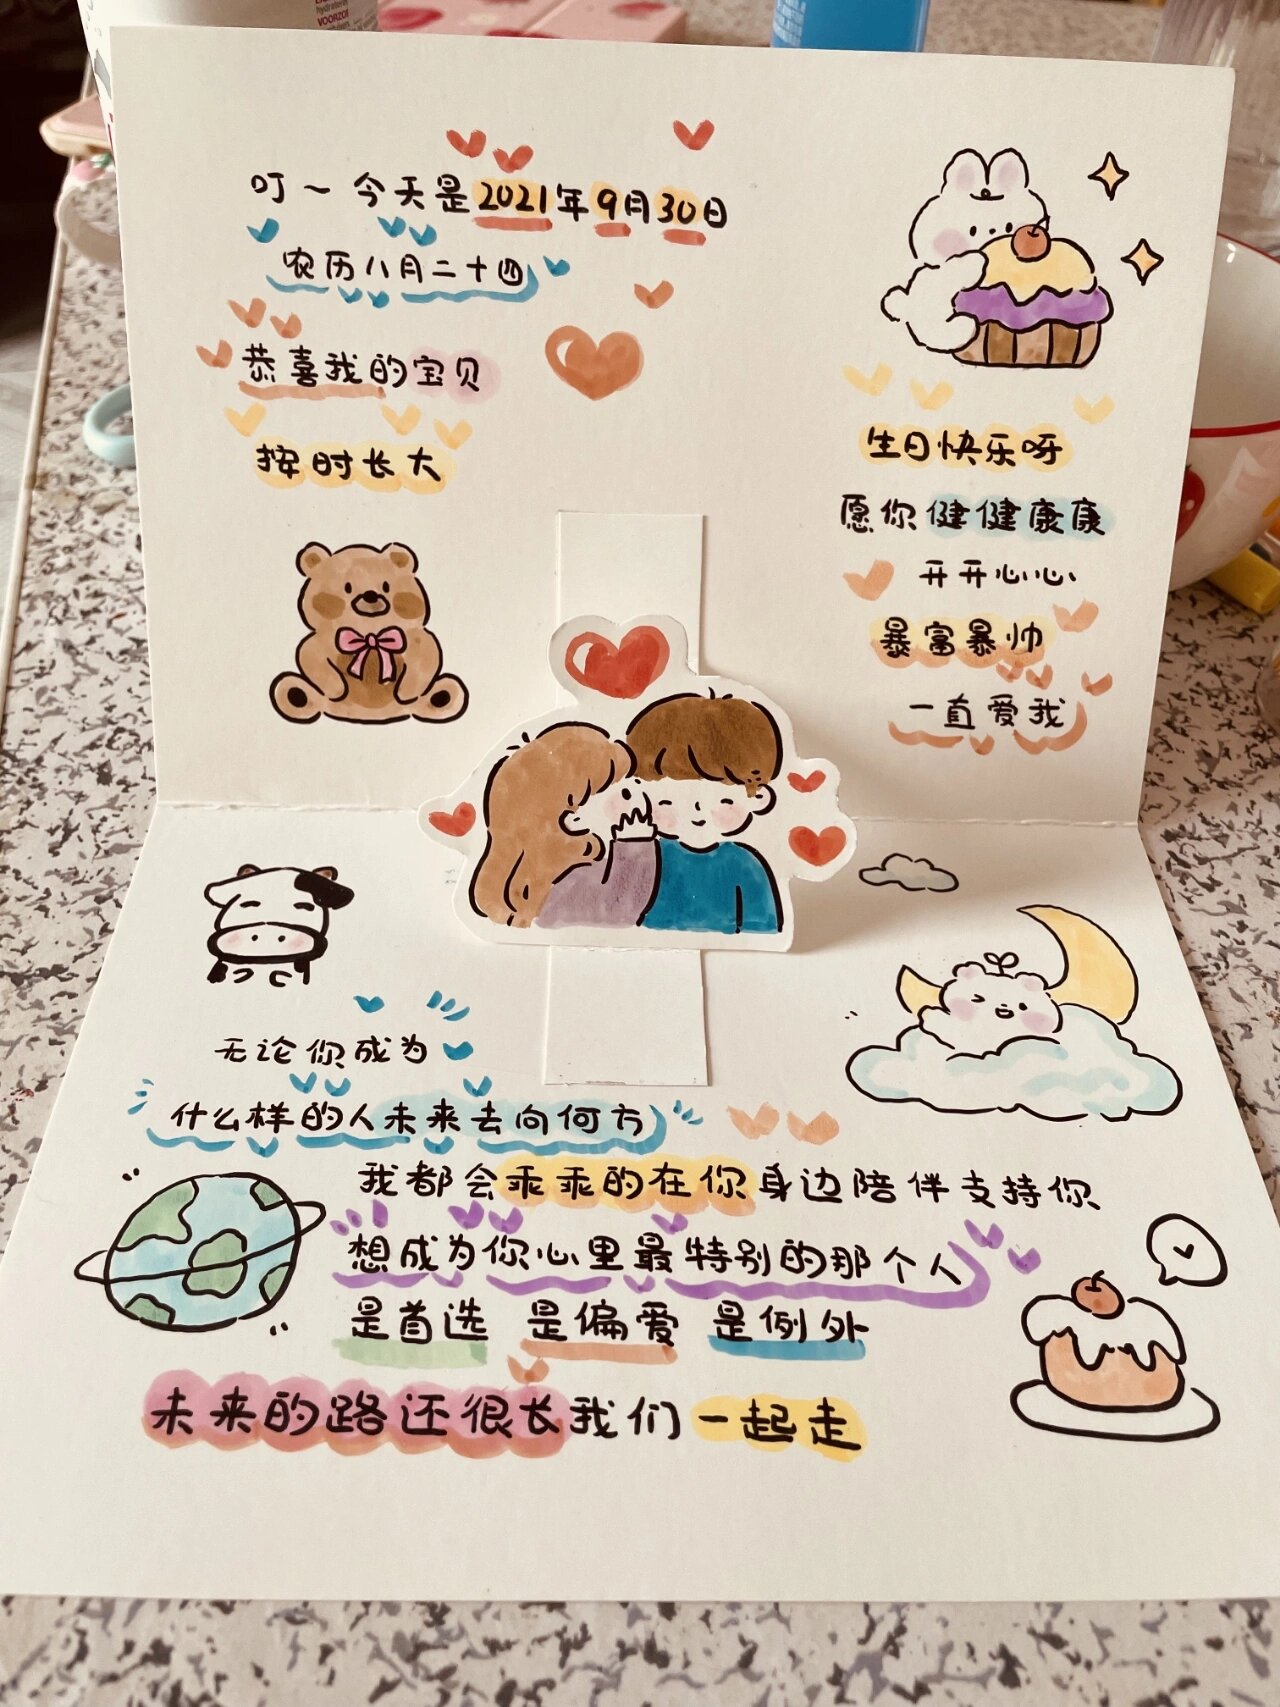 VOORZOR
叮~今天是2021年9月30日
农历八月二十四
恭喜我的宝贝
按时长大
生日快乐呀
愿你健健康康
开开心心
暴富暴帅
一直爱我
无论你成为
什么样的人未来去向何方
我都会乖乖的在你身边陪伴支持你
想成为你心里最特别的那个人
是首选 是偏爱 是例外
未来的路还很长我们一起走